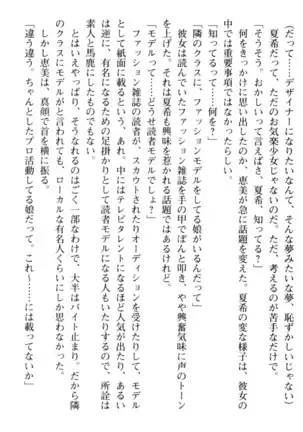 (だって……デザイナーになりたいなんて、そんな夢みたいな夢、恥ずかしいじゃない)
夏希だって、ただのお気楽少女じゃないのだ。ただ、考えるのが苦手なだけで。
「そうそう。おかしいって言えばさ、夏希、知ってる?」
何をきっかけに思い出したのか、恵美が急に話題を変えた。夏希の変な様子は、彼女の
中では重要事項ではなかったらしい。
「知ってるって……何を?」
「隣のクラスに、ファッションモデルをしてる娘がいるんだって」
彼女は読んでいたファッション雑誌を手の甲でぽんと叩き、やや興奮気味に声のトーン
を上げた。それは夏希も興味を惹かれる話題ではあるけれど、
「モデルって……どうせ読者モデルでしょ?」
ファッション雑誌の読者が、スカウトされたりオーディションを受けたりして、モデル
として紙面に載るという、あれだ。中にはテレビタレントになるほど人気が出たり、あるい
は逆に、有名になるための足掛かりとして読者モデルになる人もいたりするので、所詮は
素人と馬鹿にしたものでもない。
とはいえやっぱり、そうなれるのはごく一部なわけで、大半はバイト止まり。だから隣
のクラスにモデルがと言われても、ローカルな有名人くらいにしか思わなかった。
しかし恵美は、真顔で首を横に振る。
「違う違う。ちゃんとしたプロ活動してる娘だって。これ〜……には載ってないか」